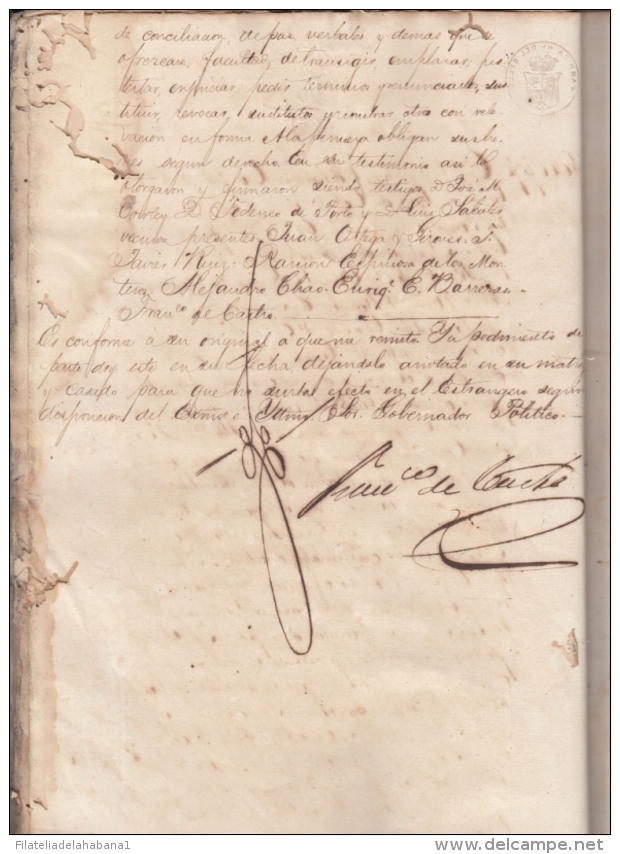 de conciliacion, de paz verbales y demas que se
ofrezcan, facultad, de transigir, emplazar, 
testar, enjuiciar, pedir terminos y renunciarlos, sus
tituir, revocar, sustitutos y nombrar otros con rele
vacion en forma. A la firmeza obligan sus bie
nes segun derecho. En su testimonio asi lo
otorgaron y firmaron siendo testigos D. José M.
Cowley, D. Federico de Porto y D. Luis Sabates
vecinos presentes. Juan Ortega y Girones.
Javier Ruiz. Ramon Espinosa de los Mon
teros. Alejandro Chao. Enriqe. E. Barreras.
Franco. de Castro.
Es conforme a su original a que me remito. Y a pedimento de
parte doy este en su fecha dejándolo anotado en su matriz
y para que surta efecto en el Estrangero segun
disposicion del Ecsmo. e Yttmo. Sor. Gobernador Politico.
Franco de Castro
Filateliadelahabana1
delcampe.net